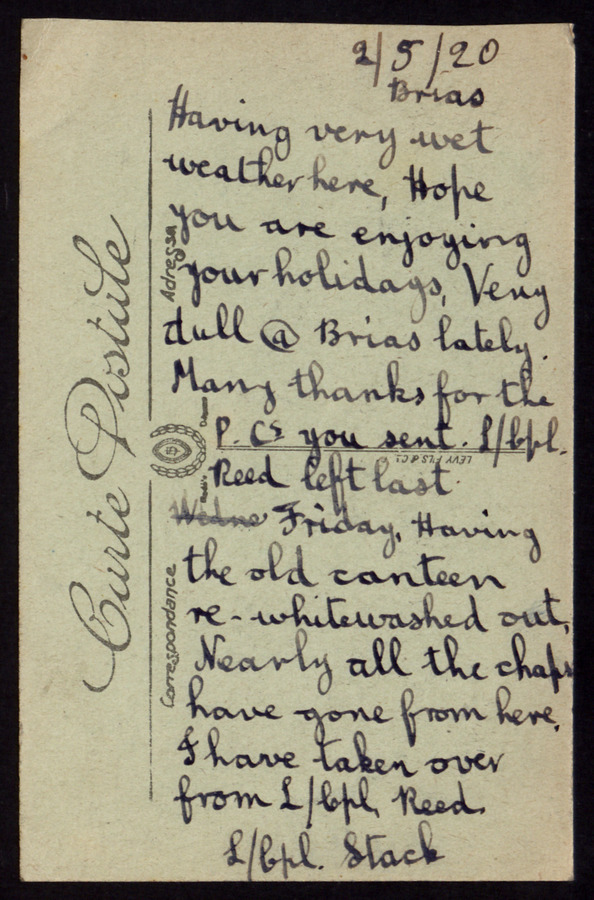 2/5/20
Brias
Having very wet
weather here, Hope
you are enjoying
your holidays, Very
dull @ Brias lately.
Many thanks for the
P. Cs you sent. L/Cpl.
Reed left last
Wedne Friday, Having
the old canteen
re-whitewashed out,
Nearly all the chaps
have gone from here,
I have taken over
from L/Cpl, Reed.
L/Cpl. Stack
Carte Postale
Adresse
Correspondance
LÉVY FILS & Cie